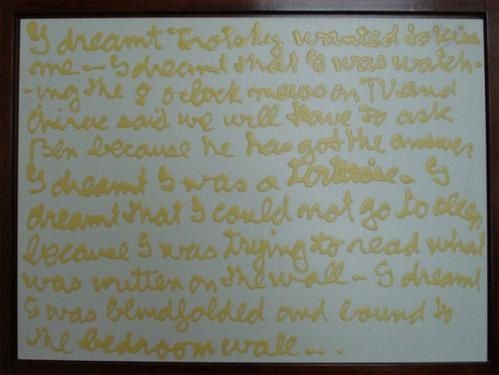 I dreamt Trotsky wanted to kiss
me - I dreamt that I was watch-
-ing the 8 o'clock news on TV and
said we will have to ask
Ben because he has got the answer
I dreamt I was a tortoise. I
dreamt that I could not go to sleep
because I was trying to read what
was written on the wall - I dreamt
I was blindfolded and bound to
the bedroom wall ...